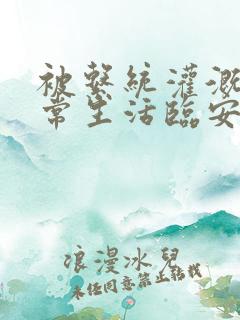 被繫統灌溉
常生活臨安
浪漫冰兒
未經同意禁止轉載